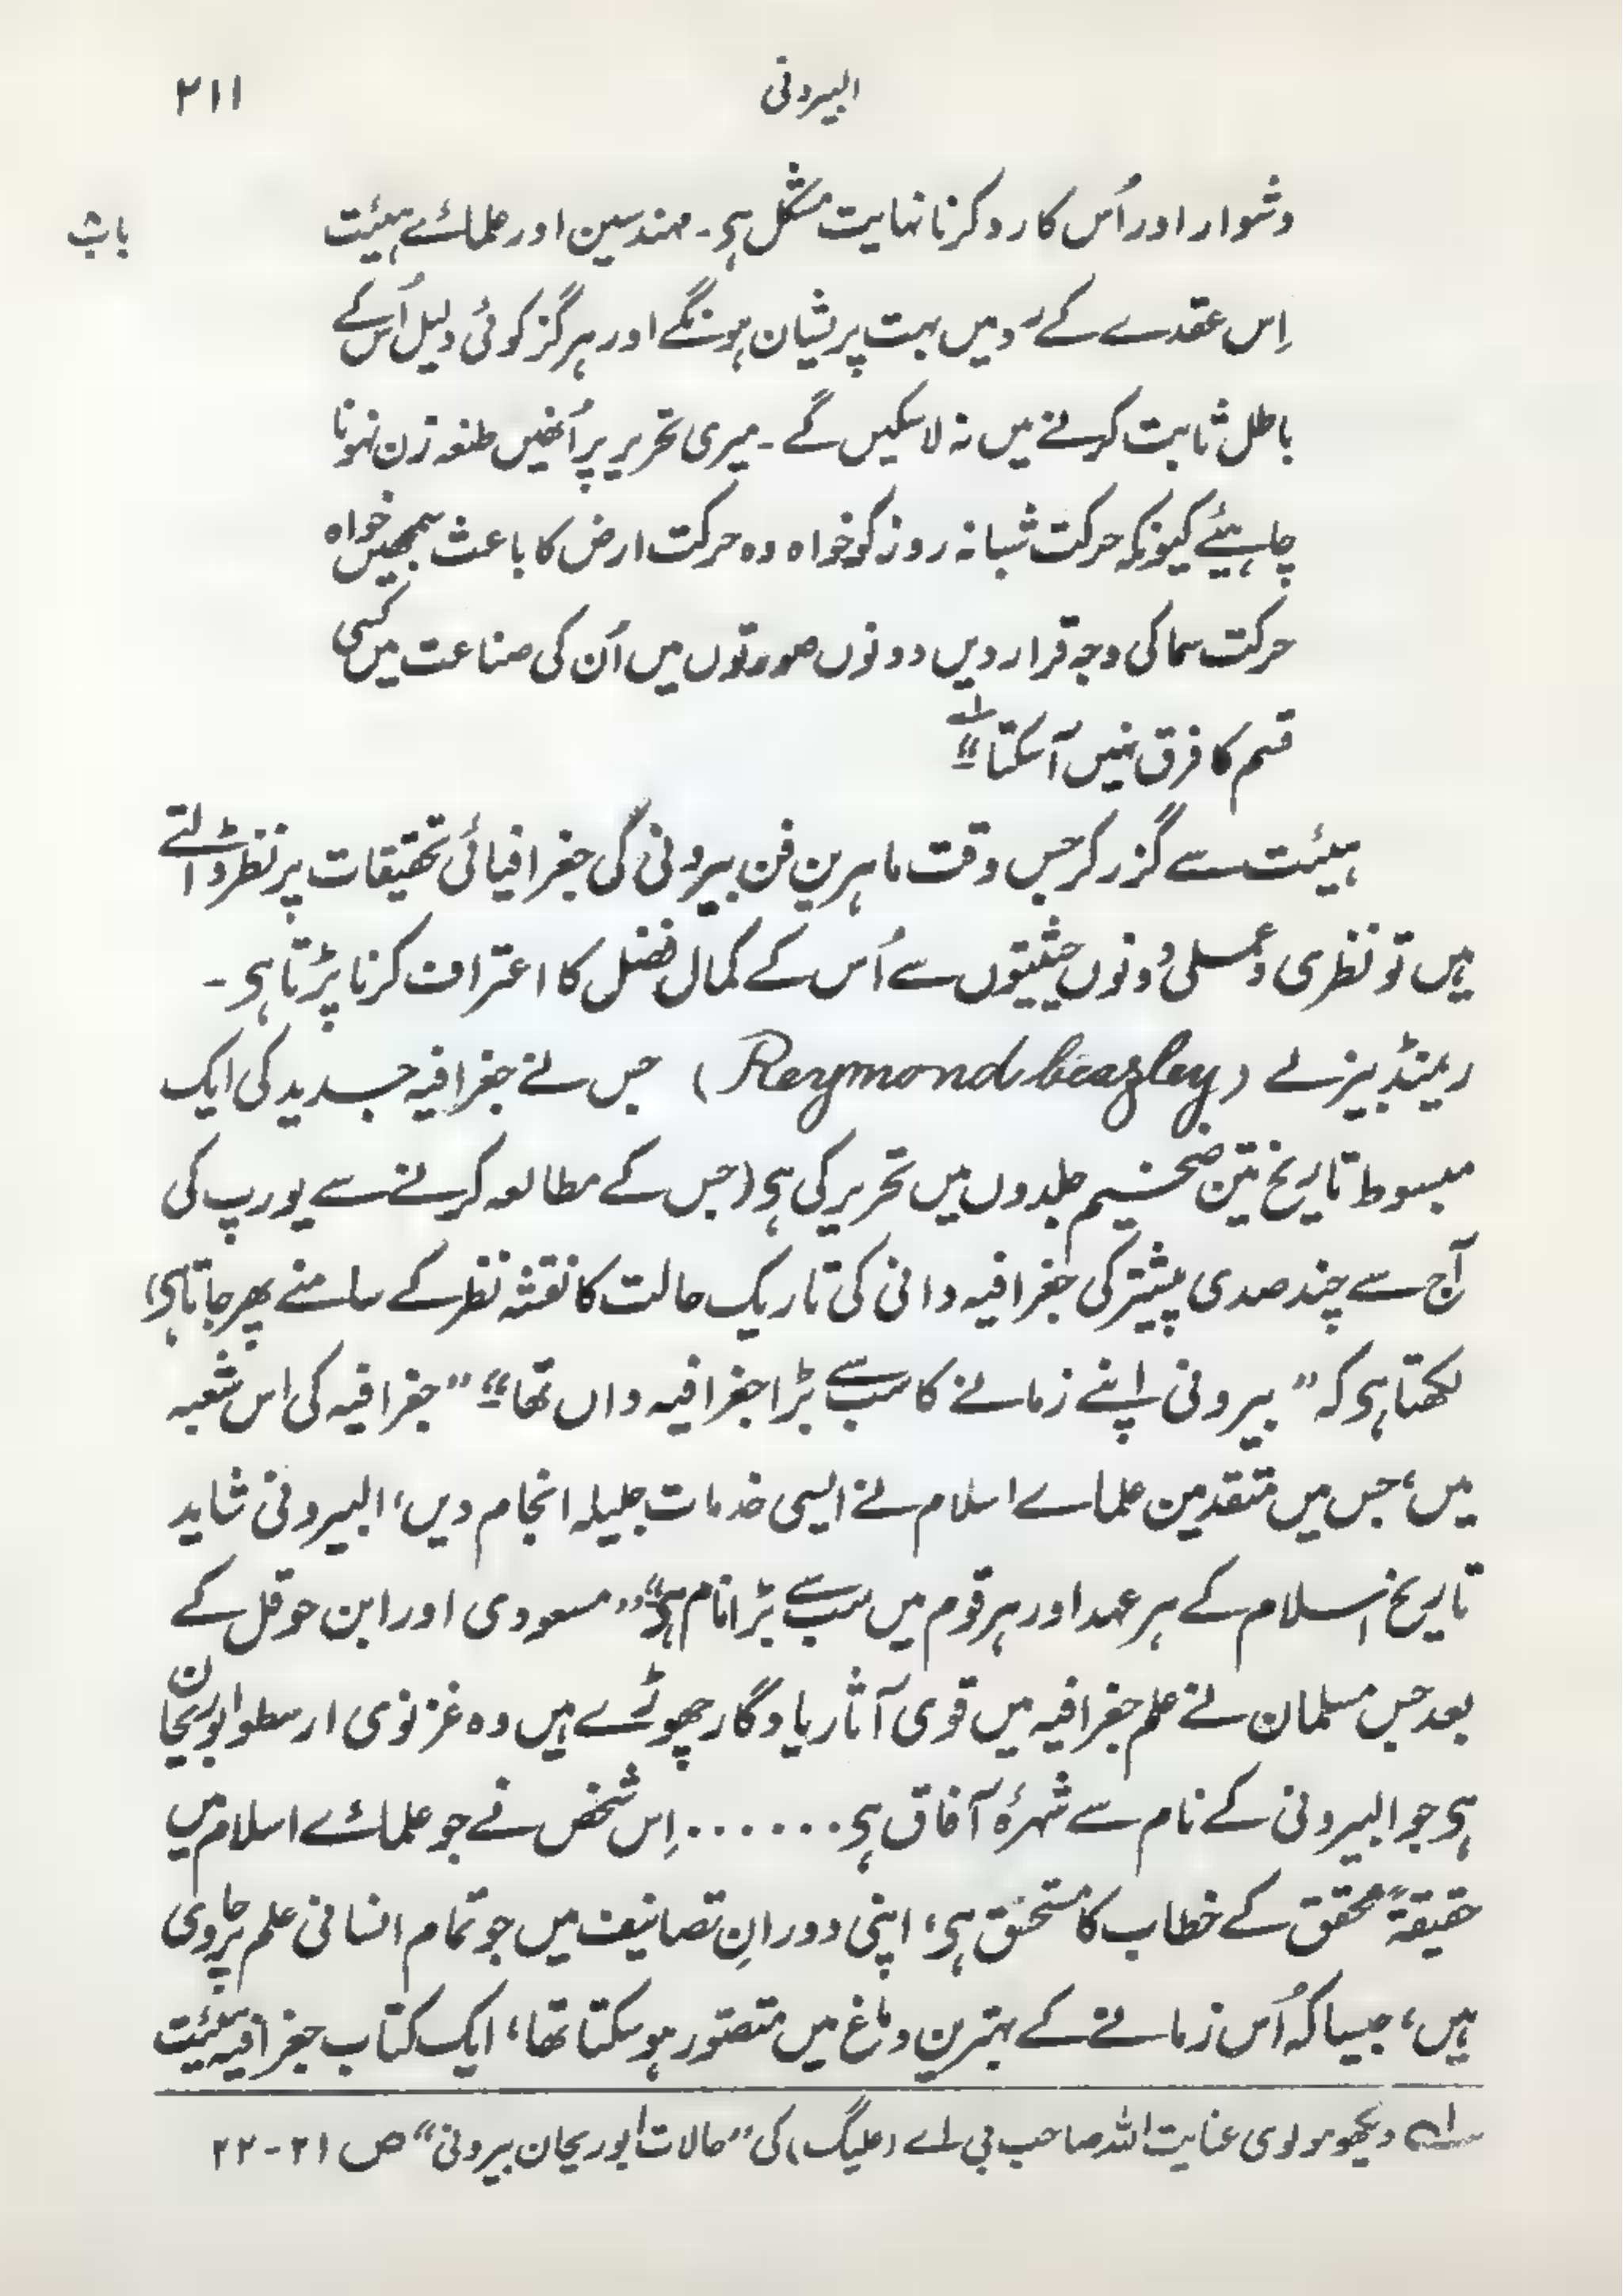 البیرونی ۲۱۱
دشوار اور اُس کا رد کرنا نہایت مشکل ہی۔ مہندسین اور علمائے ہیئت
باب
اِس عقدے کے رد میں بہت پریشان ہونگے اور ہرگز کوئی دلیل اُس کے
باطل ثابت کرنے میں نہ لا سکیں گے۔ میری تحریر پر اُنھیں طعنہ زن نہونا
چاہیئے کیونکہ حرکت شبانہ روز کو خواہ وہ حرکت ارض کا باعث سمجھیں خواہ
حرکت سما کی وجہ قرار دیں دونوں صورتوں میں اُن کی صناعت میں کسی
قسم کا فرق نہیں آسکتا“ لہ
ہیئت سے گزر کر جس وقت ماہرین فن بیرونی کی جغرافیائی تحقیقات پر نظر ڈالتے
ہیں تو نظری و عملی دونوں حیثیتوں سے اُس کے کمال فضل کا اعتراف کرنا پڑتا ہی۔
ریمنڈ بیزلے (Reymond beazley) جس نے جغرافیہ جدید کی ایک
مبسوط تاریخ تین ضخیم جلدوں میں تحریر کی ہی (جس کے مطالعہ کرنے سے یورپ کی
آج سے چند صدی پیشتر کی جغرافیہ دانی کی تاریک حالت کا نقشہ نظر کے سامنے پھر جاتا ہی)
لکھتا ہی کہ ”بیرونی اپنے زمانے کا سب سے بڑا جغرافیہ داں تھا“ ”جغرافیہ کی اس شعبہ
میں، جس میں متقدمین علماے اسلام نے ایسی خدمات جلیلہ انجام دیں، البیرونی شاید
تاریخ اسلام کے ہر عہد اور ہر قوم میں سب سے بڑا نام ہی“ ”مسعودی اور ابن حوقل کے
بعد جس مسلمان نے علم جغرافیہ میں قوی آثار یادگار چھوڑے ہیں وہ غزنوی ارسطو ابوریحان
ہی جو البیرونی کے نام سے شہرۂ آفاق ہی۔۔۔۔۔۔ اِس شخص نے جو علمائے اسلام میں
حقیقۃً محقق کے خطاب کا مستحق ہی، اپنی دورانِ تصانیف میں جو تمام انسانی علم پر حاوی
ہیں، جیسا کہ اُس زمانے کے بہترین دماغ میں متصور ہو سکتا تھا، ایک کتاب جغرافیہ ہیئت
لہ دیکھو مولوی عنایت اللہ صاحب بی اے (علیگ) کی ”حالات ابوریحان بیرونی“ ص ۲۱-۲۲